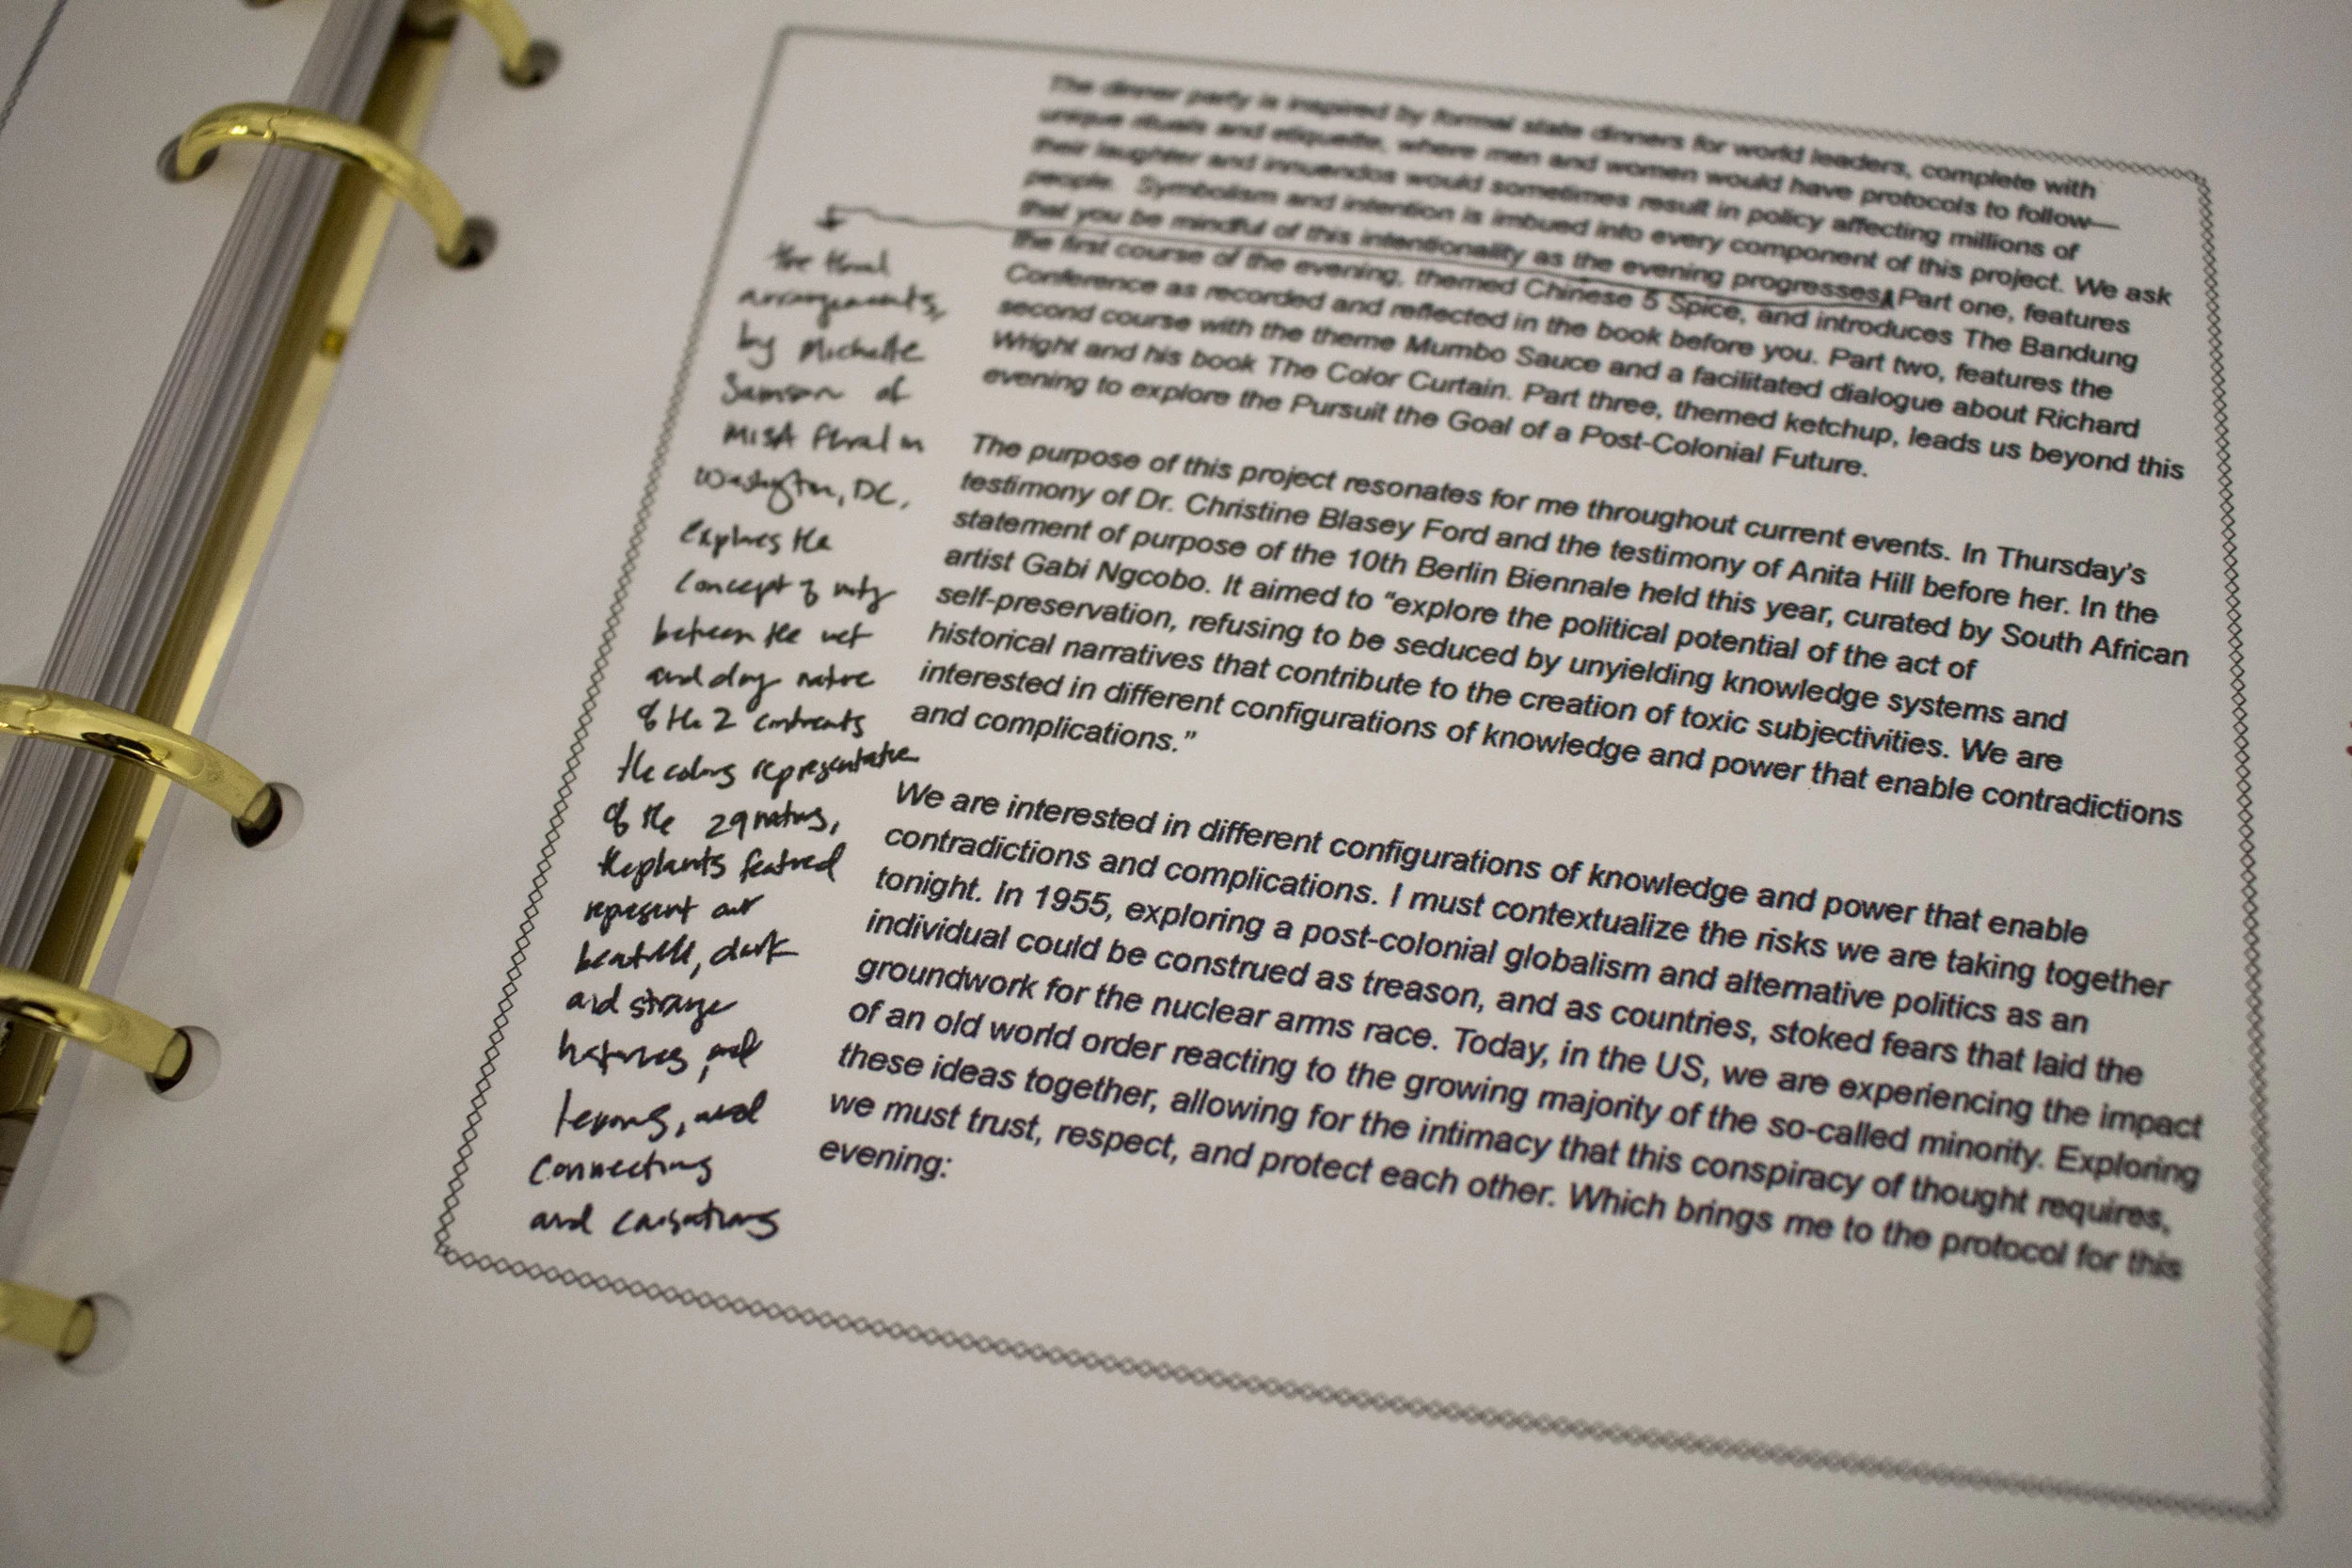 The dinner party is inspired by formal state dinners for world leaders, complete with
unique rituals and etiquette, where men and women would have protocols to follow—
their laughter and innuendos would sometimes result in policy affecting millions of
people. Symbolism and intention is imbued into every component of this project. We ask
that you be mindful of this intentionality as the evening progresses. Part one, features
the first course of the evening, themed Chinese 5 Spice, and introduces The Bandung
Conference as recorded and reflected in the book before you. Part two, features the
second course with the theme Mumbo Sauce and a facilitated dialogue about Richard
Wright and his book The Color Curtain. Part three, themed ketchup, leads us beyond this
evening to explore the Pursuit the Goal of a Post-Colonial Future.
The purpose of this project resonates for me throughout current events. In Thursday's
testimony of Dr. Christine Blasey Ford and the testimony of Anita Hill before her. In the
statement of purpose of the 10th Berlin Biennale held this year, curated by South African
artist Gabi Ngcobo. It aimed to “explore the political potential of the act of
self-preservation, refusing to be seduced by unyielding knowledge systems and
historical narratives that contribute to the creation of toxic subjectivities. We are
interested in different configurations of knowledge and power that enable contradictions
and complications.”
We are interested in different configurations of knowledge and power that enable
contradictions and complications. I must contextualize the risks we are taking together
tonight. In 1955, exploring a post-colonial globalism and alternative politics as an
individual could be construed as treason, and as countries, stoked fears that laid the
groundwork for the nuclear arms race. Today, in the US, we are experiencing the impact
of an old world order reacting to the growing majority of the so-called minority. Exploring
these ideas together, allowing for the intimacy that this conspiracy of thought requires,
we must trust, respect, and protect each other. Which brings me to the protocol for this
evening:
the floral
arrangements,
by Michelle
Samson of
MISA Floral in
Washington, DC,
explores the
concept of unity
between the wet
and dry nature
of the 2 continents
the colors representative
of the 29 nations,
the plants featured
represent our
beautiful, dark
and strange
histories, and
tensions, and
connecting
and